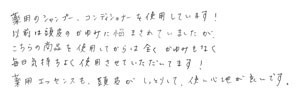 薬用のシャンプー、コンディショナーを使用しています！
以前は頭皮のかゆみに悩まされていましたが、
こちらの商品を使用してからは全くかゆみもなく
毎日気持ちよく使用させていただいてます！
薬用エッセンスも、頭皮がしっとりして、使い心地が良いです。